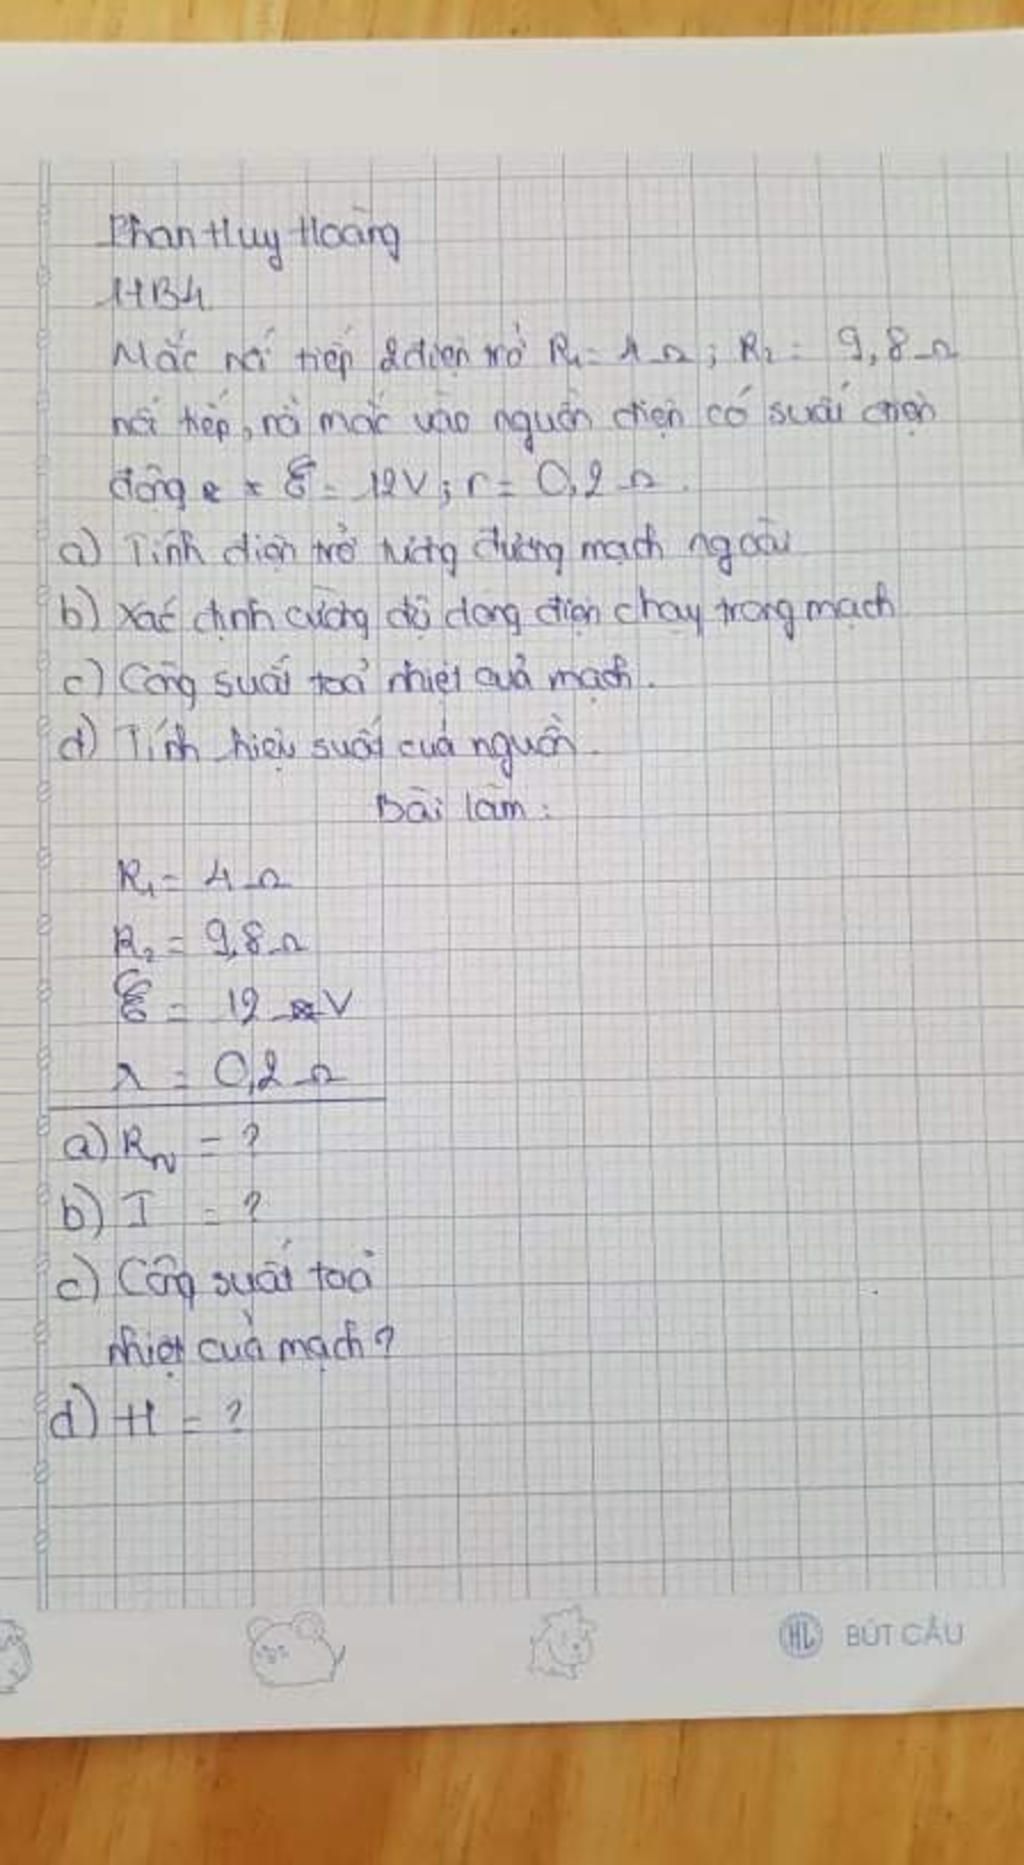 Phan Huy Hoàng
11B4
Mắc nối tiếp 2 điện trở R₁ = 1 Ω ; R₂ = 9,8 Ω
nối tiếp, rồi mắc vào nguồn điện có suất điện
động ℰ = 12V ; r = 0,2 Ω.
a) Tính điện trở tương đương mạch ngoài
b) Xác định cường độ dòng điện chạy trong mạch
c) Công suất toả nhiệt của mạch.
d) Tính hiệu suất của nguồn.
Bài làm :
R₁ = 1 Ω
R₂ = 9,8 Ω
ℰ = 12 V
r = 0,2 Ω
a) R_N = ?
b) I = ?
c) Công suất toả
nhiệt của mạch ?
d) H = ?
HL BÚT CẦU